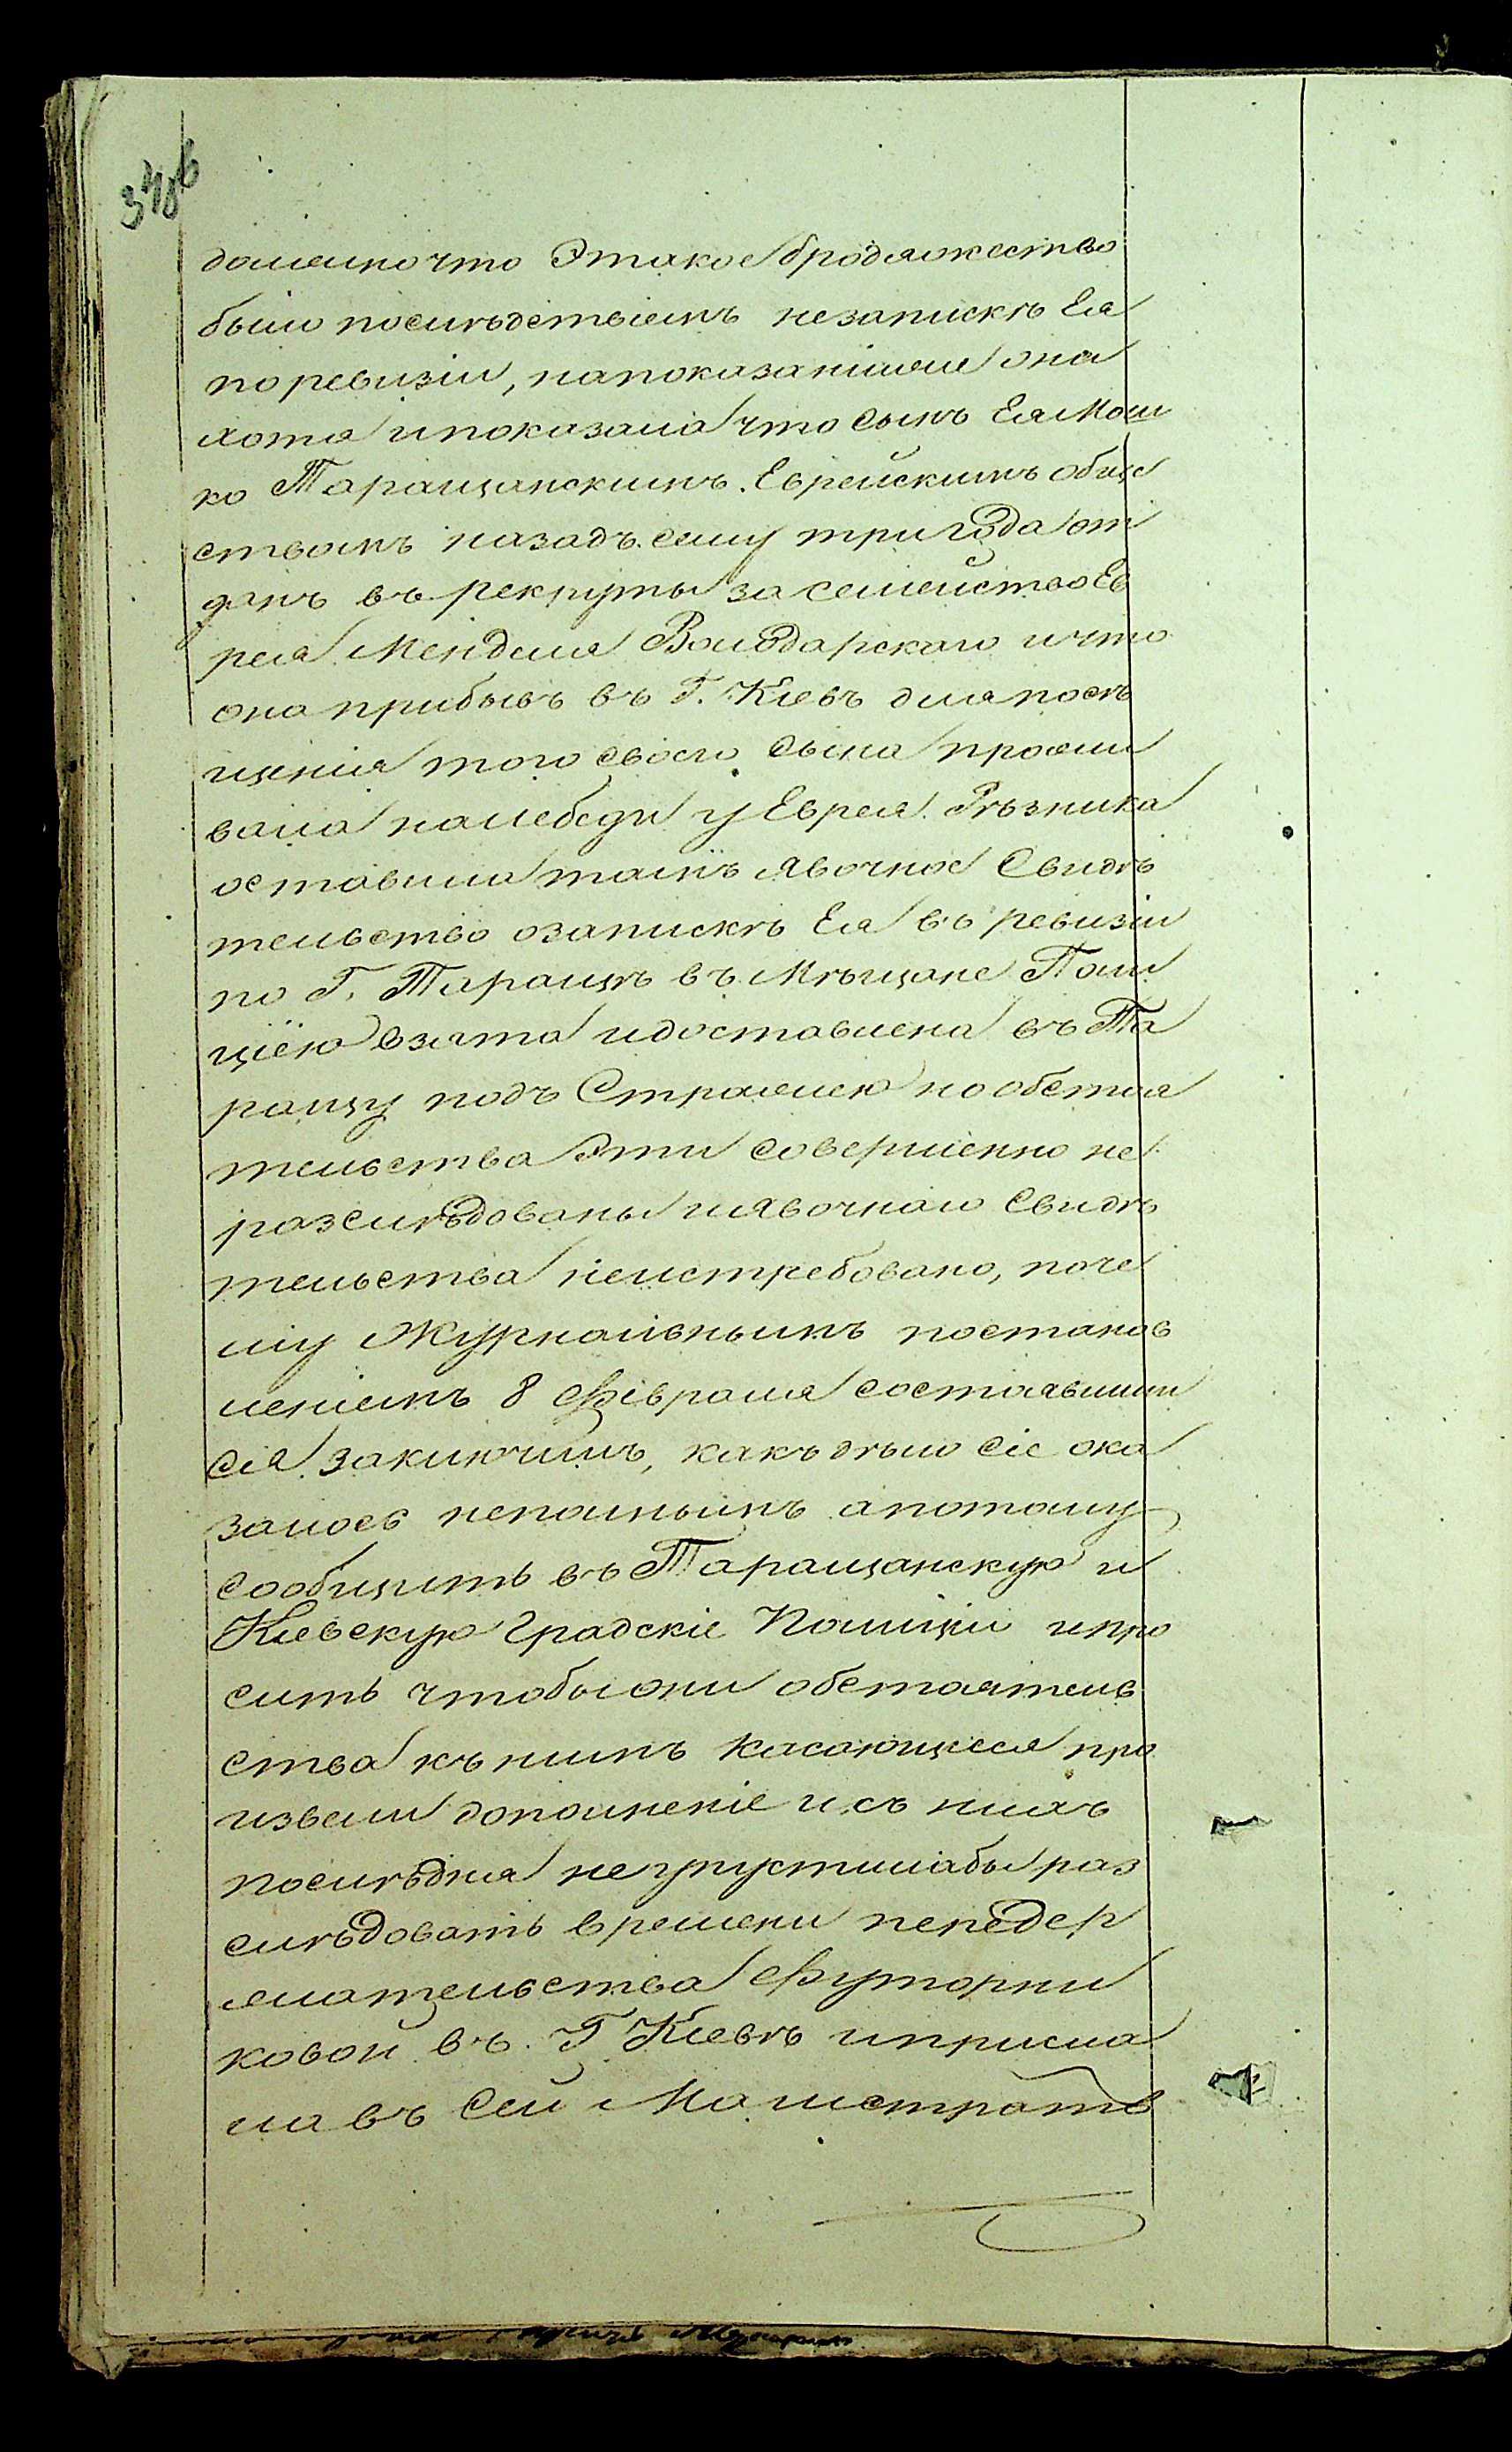 доменно что Этакое бродяжество
было последствіемъ незапискѣ Ея
по ревизіи, напоказаніяже она
хотя ипоказала что сынъ Ея Мош
ко Таращанскимъ Еврейскимъ обще
ствомъ назадъ сему три года от
данъ въ рекруты за семейство Ев
рея Менделя Володарскаго ичто
она прибывъ въ Г. Кіевъ для посѣ
щенія того своего сына прожи
вала налебеди у Еврея Рѣзника
оставила тамъ Явочное Свидѣ
тельство озапискѣ Ея въ ревизіи
по Г. Таращѣ въ Мѣщане Поли
ціею взята идоставлена въ Та
ращу подъ Стражею но обстоя
тельства Эти совершенно не
разслѣдованы иявочнаго Свидѣ
тельства неистребовано, поче
му Журнальнымъ постанов
леніемъ 8 Февраля состоявшим
ся заключилъ, какъ дѣло сіе ока
залось неполнымъ апотому
сообщить въ Таращанскую и
Кіевскую Градскіе Полиціи ипро
сить чтобы они обстоятель
ства къ нимъ касающіеся про
извели дополненіе исъ нихъ
послѣдняя не упустилабы раз
слѣдовать времени передер
жательства Футорни
ковой въ Г Кіевѣ иприсла
ла въ Сей Магистратъ